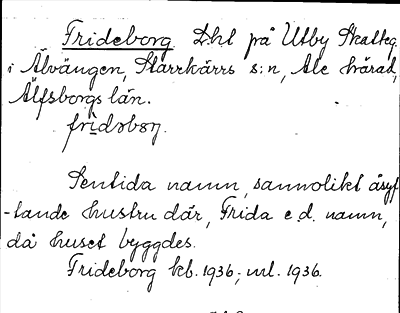 Frideborg Lht på Utby Skatteg.
i Älvängen, Starrkärrs s:n, Ale härad,
Älfsborgs län.
Sentida namn, sannolikt åsyf
-tande hustru där, Frida e.d. namn,
då huset byggdes.
Frideborg kb. 1936; ml. 1936.